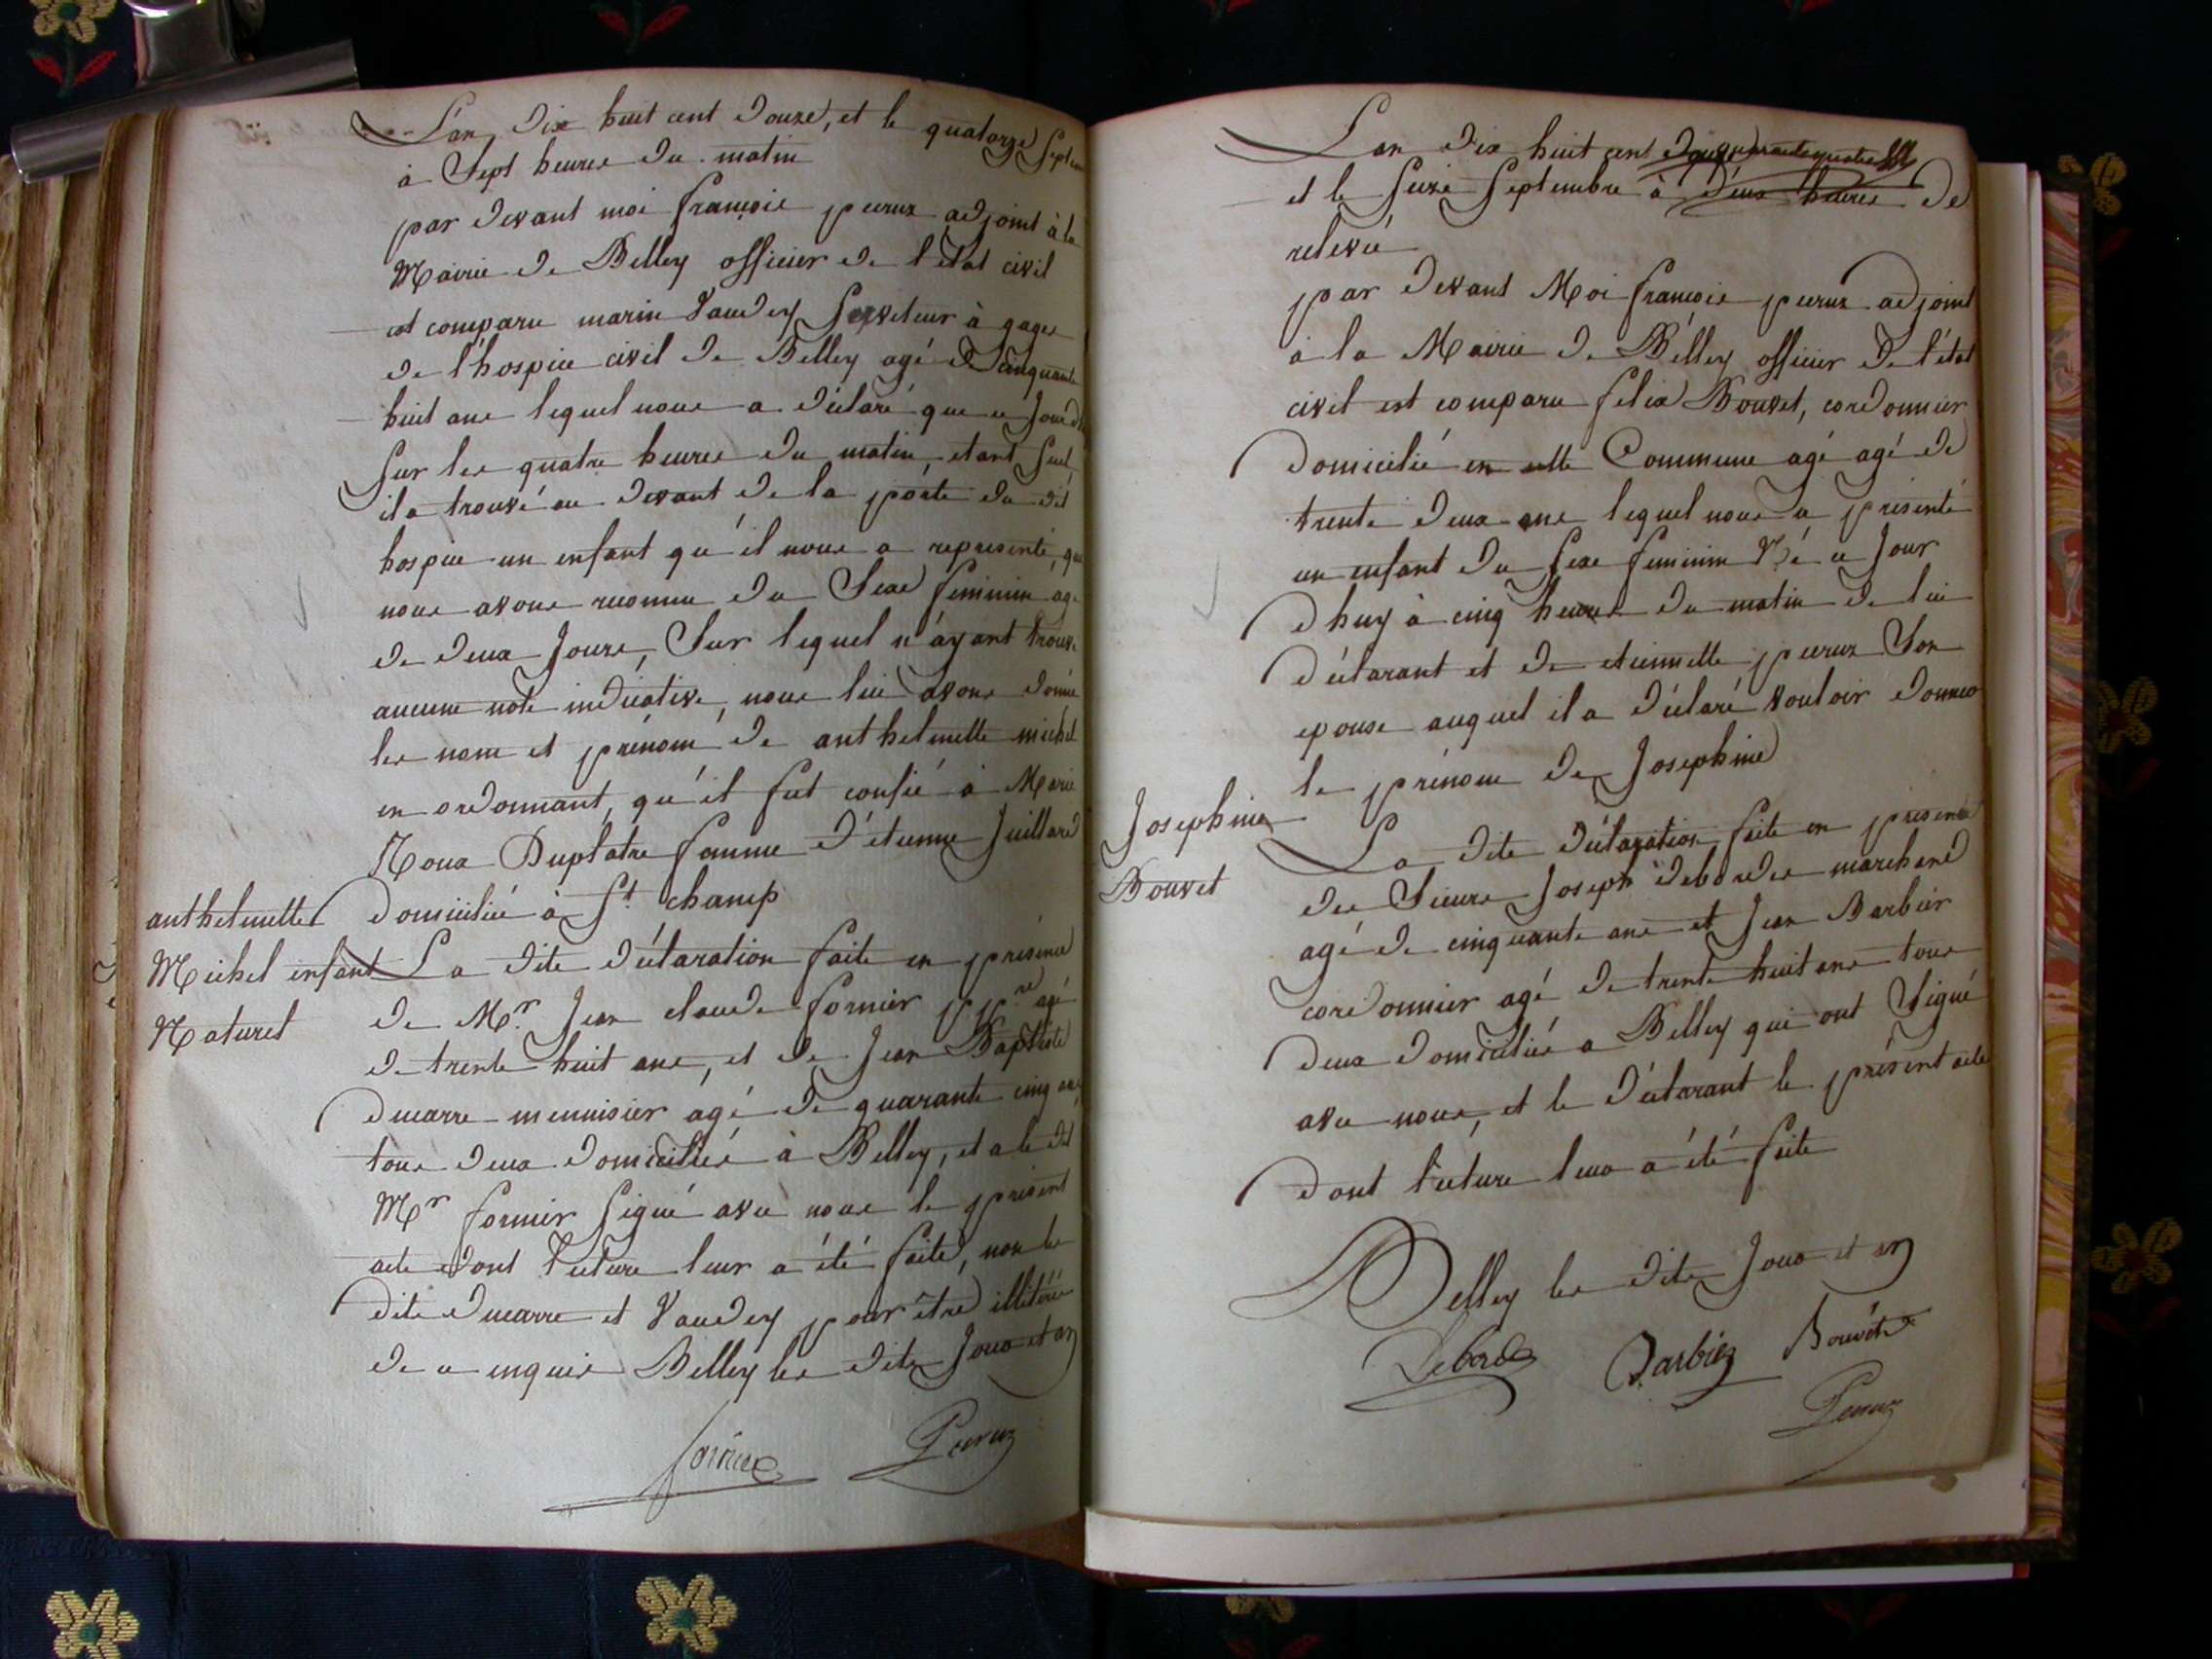 L'an dix huit cent douze, et le quatorze Septem
à Sept heures du matin
par devant moi françois peruz adjoint à la
Mairie de Belley officier de l'etat civil
est comparu marin Vaudey Serviteur à gages
de l'hospice civil de Belley agé de cinquante
huit ans lequel nous a déclaré que ce Jourd
Sur les quatre heures du matin, etant Seul,
il a trouvé au devant de la porte du dit
hospice un enfant qu'il nous a representé, que
nous avons reconnu du Sexe feminin agé
de deux Jours, Sur lequel n'ayant trouvé
aucune note indicative, nous lui avons donné
les nom et prénom de anthelmette michel
en ordonnant, qu'il fut confié à Marie
Roux Duplatre femme d'étienne Juillard
domiciliée à St. champ
anthelmette
Michel enfant
Naturel
La dite déclaration faite en présence
de Mr. Jean claude fornier ppre agé
de trente huit ans, et de Jean Baptiste
ducarre menuisier agé de quarante cinq ans
tous deux domiciliés à Belley, et a le dit
Mr fornier Signé avec nous le present
acte dont lecture leur a été faite, non les
dits ducarre et Vaudey pour être illitérés
de ce enquis Belley les dits Jour et an
fornier Peruz
L'an dix huit cent
et le Seize Septembre à deux heures de
relevée
par devant Moi françois peruz adjoint
à la Mairie de Belley officier de l'état
civil est comparu felix Bouvet, cordonnier
domicilié en cette Commune agé agé de
trente deux ans lequel nous a présenté
un enfant du Sexe feminin Né ce Jour
d'huy à cinq heures du matin de lui
déclarant et de etiennette peruz Son
epouse auquel il a déclaré vouloir donner
le prénom de Josephine
Josephine
Bouvet
La dite déclaration faite en presence
des Sieurs Joseph debordes marchand
agé de cinquante ans et Jean Barbier
cordonnier agé de trente huit ans tous
deux domiciliés a Belley qui ont Signé
avec nous, et le déclarant le présent acte
dont lecture leur a été faite
Belley les dits Jour et an
Debordes Barbier Bouvet
Peruz